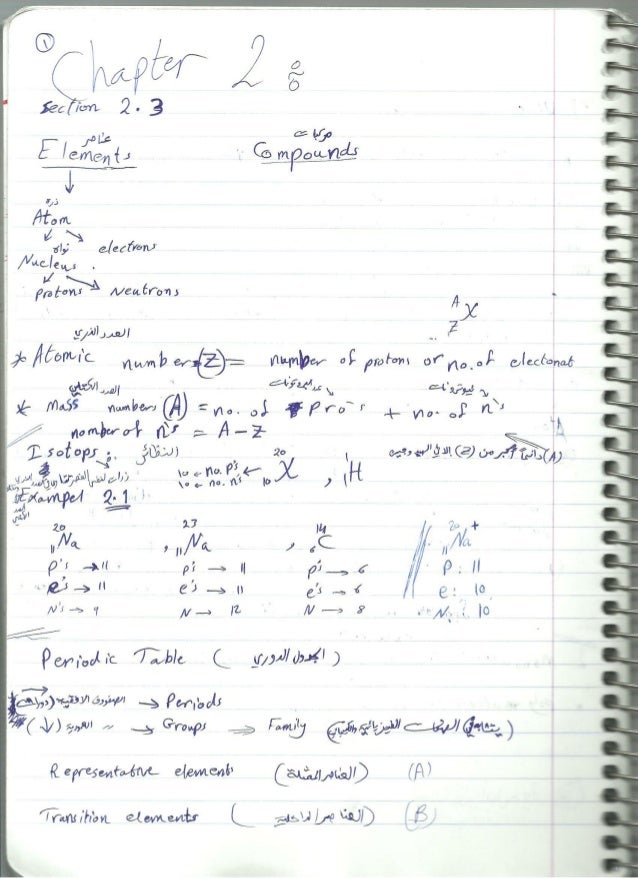 ①
Chapter 2 :
section 2.3
عناصر مركبات
Elements Compounds
ذرة
Atom
نواة electrons
Nucleus
protons Neutrons
A
X
Z
العدد الذري
* Atomic number (Z) = number of protons or no. of
العدد الكتلي عدد البروتونات نيوترونات
* Mass numbers (A) = no. of Pro-s + no. of n's
nomber of n's = A - Z
(A) دائماً أكبر من (Z)
Isotops : النظائر
10 ← no. p's ← 20 X 10 , 1 H 1
10 ← no. n's
Exampel 2.1
20 Na 11 , 23 Na 11 , 14 C 6 20 Na + 11
p's → 11 p's → 11 p's → 6 P : 11
e's → 11 e's → 11 e's → 6 e : 10
N's → 9 N → 12 N → 8 N : 10
Periodic Table ( الجدول الدوري )
الصفوف الافقية (دورات) → Periods
(↓) العمودية " → Groups ⇒ Family
Representative elements (العناصر الممثلة) (A)
Transition elements (العناصر الداخلية) (B)